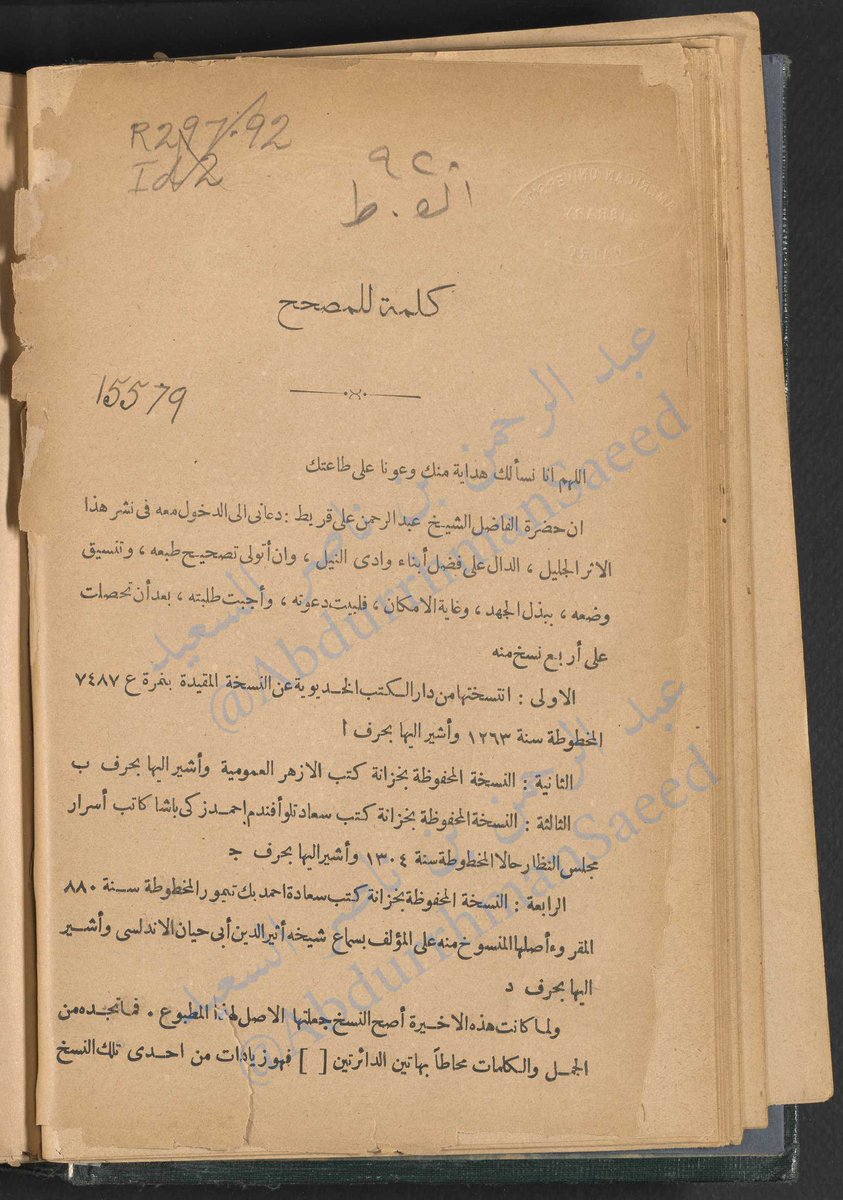 R297.92
Id2
٩٢٠
ط
AMERICAN UNIVERSITY
LIBRARY
CAIRO
كلمة للمصحح
15579
اللهم انا نسألك هداية منك وعونا على طاعتك
ان حضرة الفاضل الشيخ عبد الرحمن على قريط : دعانى الى الدخول معه فى نشر هذا
الاثر الجليل ، الدال على فضل أبناء وادى النيل ، وان أتولى تصحيح طبعه ، وتنسيق
وضعه ، ببذل الجهد ، وغاية الامكان ، فلبيت دعوته ، وأجبت طلبته ، بعد أن تحصلت
على أربع نسخ منه
الاولى : انتسختها من دار الكتب الخديوية عن النسخة المقيدة بنمرة ع ٧٤٨٧
المخطوطة سنة ١٢٦٣ وأشير اليها بحرف ا
الثانية : النسخة المحفوظة بخزانة كتب الازهر العمومية وأشير اليها بحرف ب
الثالثة : النسخة المحفوظة بخزانة كتب سعادتلو أفندم احمد زكى باشا كاتب أسرار
مجلس النظار حالا المخطوطة سنة ١٣٠٤ وأشير اليها بحرف ج
الرابعة : النسخة المحفوظة بخزانة كتب سعادة احمد بك تيمور المخطوطة سنة ٨٨٠
المقروء أصلها المنسوخ منه على المؤلف بسماع شيخه أثير الدين أبى حيان الاندلسى وأشير
اليها بحرف د
ولما كانت هذه الاخيرة أصح النسخ جعلتها الاصل لهذا المطبوع . فما تجده من
الجمل والكلمات محاطاً بهاتين الدائرتين [ ] فهو زيادات من احدى تلك النسخ
عبد الرحمن بن ناصر السعيد
@AbdurrhmanSaeed
عبد الرحمن بن ناصر السعيد
@AbdurrhmanSaeed